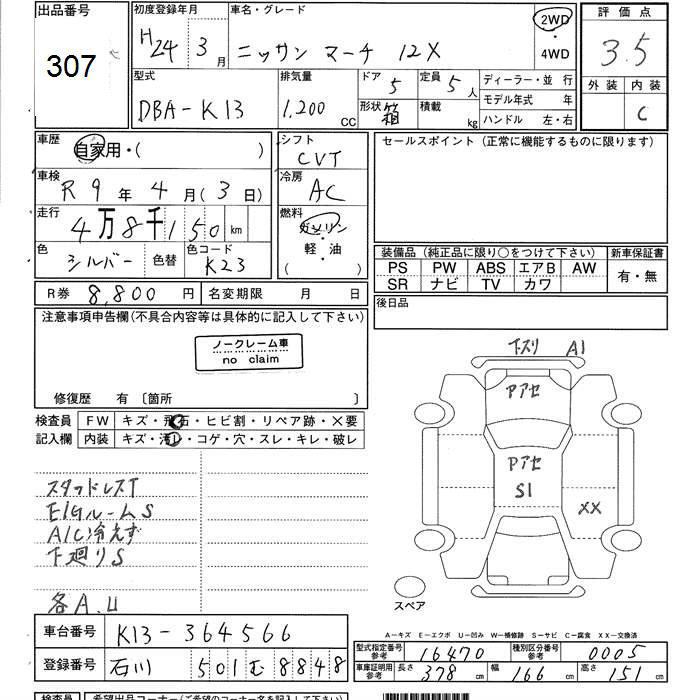 出品番号
307
初度登録年月
H24年3月
車名・グレード
ニッサン マーチ 12X
2WD
・
4WD
評価点
3.5
外装 内装
C
型式
DBA-K13
排気量
1,200 CC
ドア
5
定員
5人
形状
箱
積載
kg
ディーラー・並行
モデル年式 年
ハンドル 左・右
車歴
自家用・( )
車検
R9年4月(3日)
走行
4万8千150 km
色
シルバー
色替
色コード
K23
シフト
CVT
冷房
AC
燃料
ガソリン
軽・油
( )
セールスポイント (正常に機能するものに限ります)
装備品 (純正品に限り○をつけて下さい)
PS PW ABS エアB AW
SR ナビ TV カワ
新車保証書
有・無
後日品
R券 8,800円
名変期限 月 日
注意事項申告欄(不具合内容等は具体的に記入して下さい)
ノークレーム車
no claim
修復歴 有 〔箇所 〕
検査員
記入欄
FW キズ・飛石・ヒビ割・リペア跡・X要
内装 キズ・汚レ・コゲ・穴・スレ・キレ・破レ
スタッドレスT
E/GルームS
A/C冷えず
下廻りS
各A.U
下スリ A1
Pアセ
Pアセ
S1
XX
スペア
A―キズ E―エクボ U―凹み W―補修跡 S―サビ C―腐食 XX―交換済
車台番号 K13-364566
登録番号 石川 501 む 8848
型式指定番号
参考
16470
種別区分番号
参考
0005
車庫証明用
参考
長さ 378 cm 幅 166 cm 高さ 151 cm
検査員 希望出品コーナー(ご希望のコーナー名を記入して下さい)